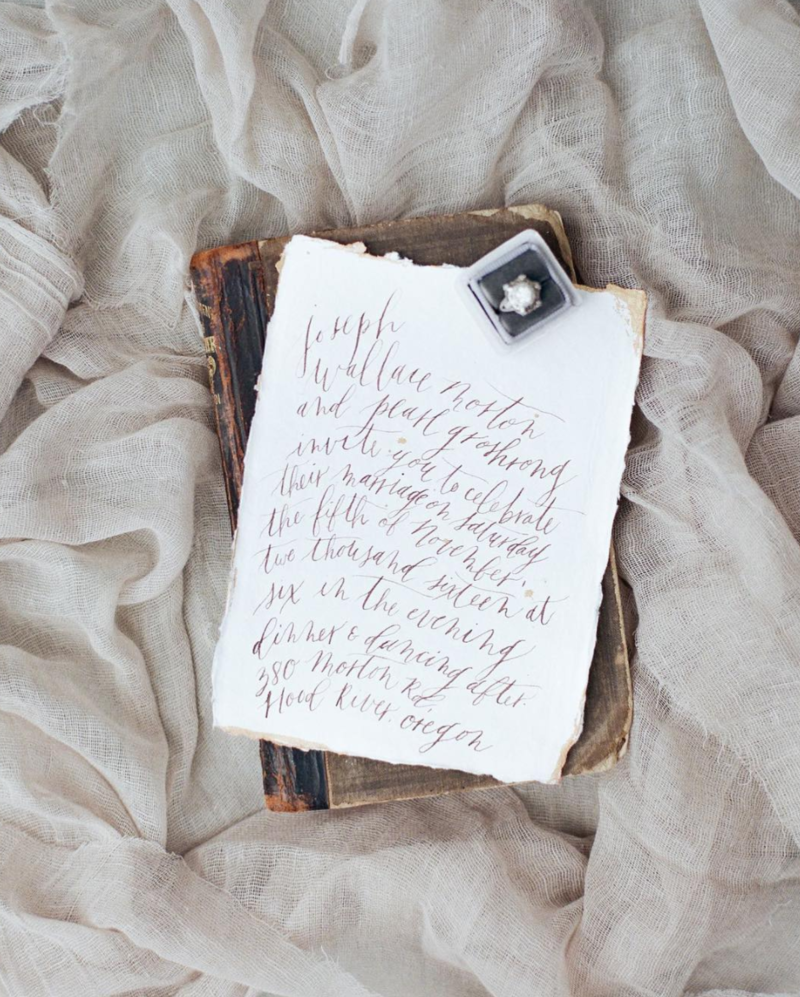 Joseph
Wallace Morton
and pearl groshrong
invite you to celebrate
their marriage on Saturday
the fifth of November,
two thousand sixteen at
six in the evening
dinner & dancing after.
380 Morton Rd.
Hood River, Oregon